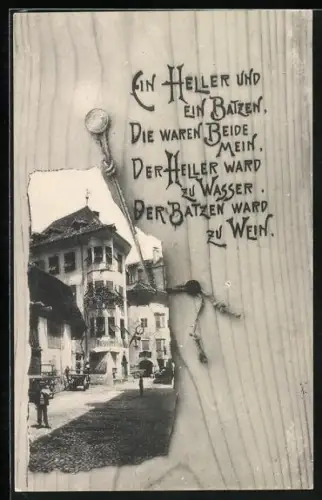 Ein Heller und
ein Batzen,
Die waren Beide
mein,
Der Heller ward
zu Wasser,
Der Batzen ward
zu Wein.